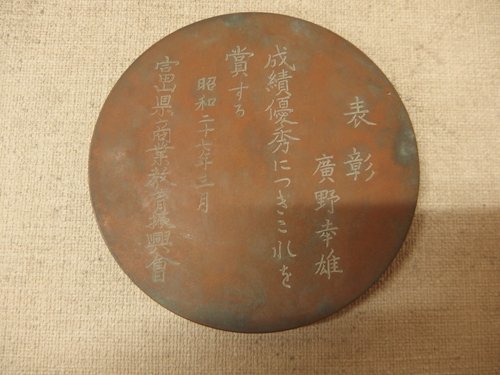 表彰
廣野幸雄
成績優秀につきこれを
賞する
昭和二十七年三月
富山県商業教育振興會